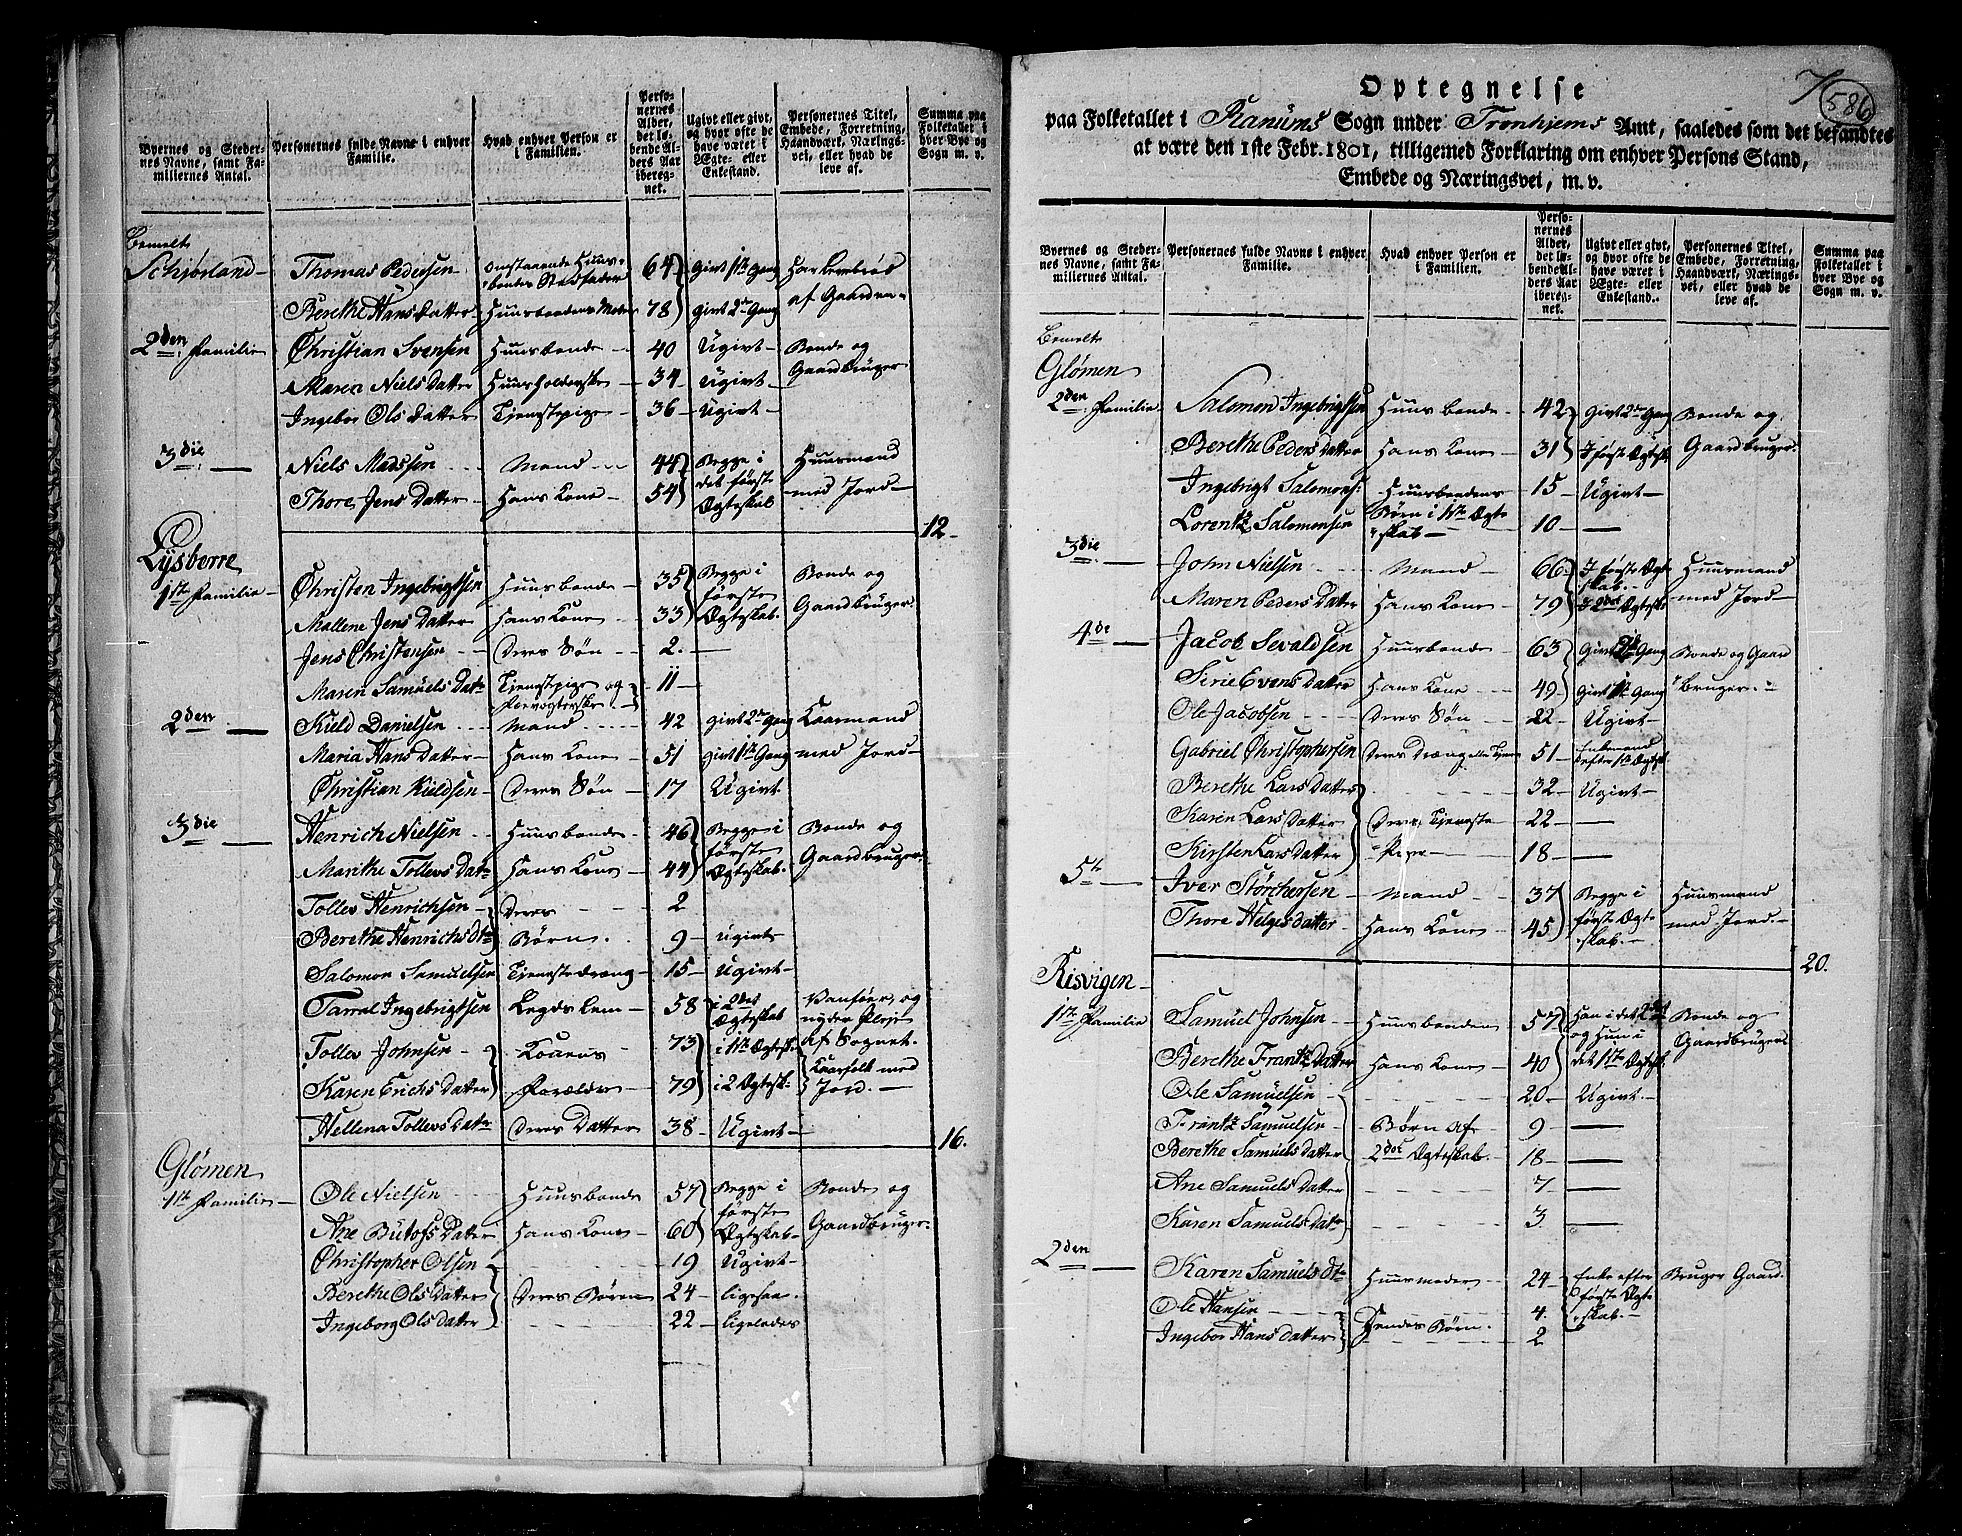 Byernes og Steder- nes Navne, samt Fa- milliernes Antal.
Personernes fulde Navne i enhver Familie.
Hvad enhver Person er i Familien.
Perso- nernes Alder, det lø- bende Al- ders Aar ibereg- net.
Ugivt eller givt, og hvor ofte de have været i Ægte- eller Enkestand.
Personernes Titel, Embede, Forretning, Haandværk, Nærings- vei, eller hvad de leve af.
Summa paa Folketallet i hver Bye og Sogn m. v.
Bemelte
Schjørland
Thomas Pedersen 64 Givt 1ste Gang
Berethe Hans Datter 78 givt 2den Gang af Gaarden
2den Familie Christian Svensen Huusbonde 40 Ugivt Bonde og
Maren Niels Datter Huusholderske 34 Ugivt Gaardbruger
Ingebor Ols Datter Tjenestepige 36 Ugivt
3die Niels Madssen Mand 44 Begge i Huusmand
Thore Jens Datter Hans Kone 54 det første Ægteskab med Jord
12
Lysberre
1ste Familie Christen Ingebrigtsen Huusbonde 35 Begge i Bonde og
Mallene Jens Datter Hans Kone 33 første Ægteskab. Gaardbruger
Jens Christensen Deres Søn 2
Maren Samuels Datr Tjenestepige og 11
2den Kield Danielsen Mand 42 givt 2den Gang Kaarmand
Maria Hans Datter Hans Kone 51 givt 1ste Gang med Jord
Christian Kieldsen Deres Søn 17 Ugivt
3die Henrich Nielsen Huusbonde 46 Begge i Bonde og
Marithe Tollevs Datr Hans Kone 44 første Ægteskab. Gaardbruger
Tollev Henrichsen Deres 2
Berethe Henrichs Dtr Børn. 9 ugivt
Salomon Samuelsen Tjenestedreng 15 Ugivt
Ingebrigtsen Legds Lem 58 i 2det Ægteskab Vanføer, og nyder Pleje
Tollev Johnsen Konens 73 i 1ste Ægtesk. af Sognet.
Karen Erichs Datter Forældre 79 i 2 Ægtesk. Kaarfolk med Jord.
Hellena Tollevs Datr Deres Datter 38 Ugivt
16.
Glømen
1ste Familie Ole Nielsen Huusbonde 57 Begge i Bonde og
Ane Hans Kone 60 første Ægteskab Gaardbruger
Christopher Olsen 19 Ugivt
Berethe Ols Datter Deres Børen 24 ligesaa.
Ingeborg Ols Datter 22 ligeledes
7 586
Optegnelse
paa Folketallet i Ranums Sogn under Tronhjems Amt, saaledes som det befandtes
at være den 1ste Febr. 1801, tilligemed Forklaring om enhver Persons Stand,
Embede og Næringsvei, m. v.
Byernes og Steder- nes Navne, samt Fa- milliernes Antal.
Personernes fulde Navne i enhver Familie.
Hvad enhver Person er i Familien.
Perso- nernes Alder, det lø- bende Al- ders Aar ibereg- net.
Ugivt eller givt, og hvor ofte de have været i Ægte- eller Enkestand.
Personernes Titel, Embede, Forretning, Haandværk, Nærings- vei, eller hvad de leve af.
Summa paa Folketallet i hver Bye og Sogn m. v.
Bemelte
Glømen
2den Familie Salomon Ingebrigtsen Huusbonde 42 Givt 2den Gang Bonde og
Berethe Peders Datter Hans Kone 31 I første Ægtesk. Gaardbruger.
Ingebrigt Salomons: Huusbondens 15 Ugivt
Lorentz Salomonsen Børn i 1ste Ægte skab 10
3die John Nielsen Mand 66 I første Ægte skab Huusmand
Maren Peders Datter Hans Kone 79 I 2det Ægtesk. med Jord
4de Jacob Sevaldsen Huusbonde 63 Givt Gang Bonde og Gaard
Sirie Evens Datter Hans Kone 49 Givt 1ste Gang bruger.
Ole Jacobsen Deres Søn 22 Ugivt
Gabriel Christophersen 51 Enkemand efter 1ste Ægtesk
Berethe Lars Datter 32 Ugivt
Karen Lars Datter Deres Tjeneste 22
Kirsten Lars Datter Piger 18
5te Iver Størchersen Mand 37 Begge i Huusmand
Thore Helges datter Hans Kone 45 første Ægte skab. med Jord
20.
Risvigen
1ste Familie Samuel Johnsen Huusbonden 57 Han i det 2det Bonde og
Berethe Frantz Datter Hans Kone 40 og Hun i det 1ste Ægtesk. Gaardbruger
Ole Samuelsen 20 Ugivt
Frantz Samuelsen Børn af 9
Berethe Samuels Datter 2det Ægteskab. 18
Ane Samuels Datter 7
Karen Samuels Datr 3
2den Karen Samuels Dtr Huusmoder 24 Enke efter Bruger Gaard.
Ole Hansen 4. første Ægte
Ingebor Hans Datter Hendes Børn. 2 skab.